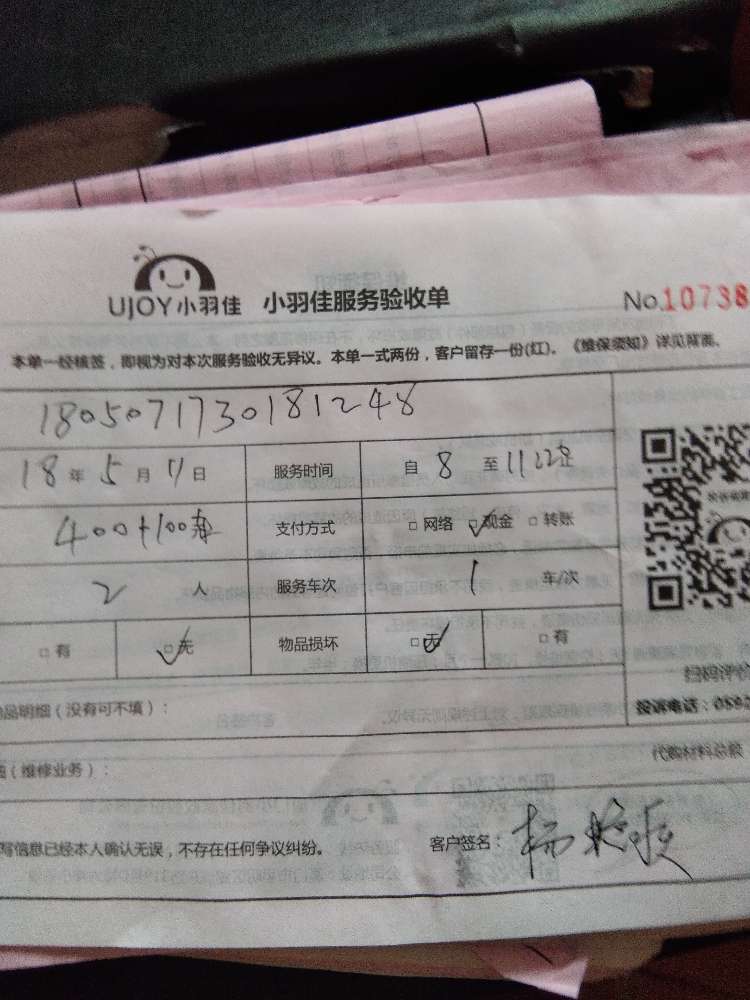 UJOY小羽佳 小羽佳服务验收单 No.10738
本单一经核签，即视为对本次服务验收无异议。本单一式两份，客户留存一份(红)。《维保须知》详见背面。
1805071730181248
18年5月11日 服务时间 自8至11
400+100 支付方式 □网络 □现金 □转账
2人 服务车次 1车/次
□有 □无 物品损坏 □无 □有
扫码评价
品明细（没有可不填）： 投诉电话：059
（维修业务）： 代购材料总额
写信息已经本人确认无误，不存在任何争议纠纷。 客户签名：